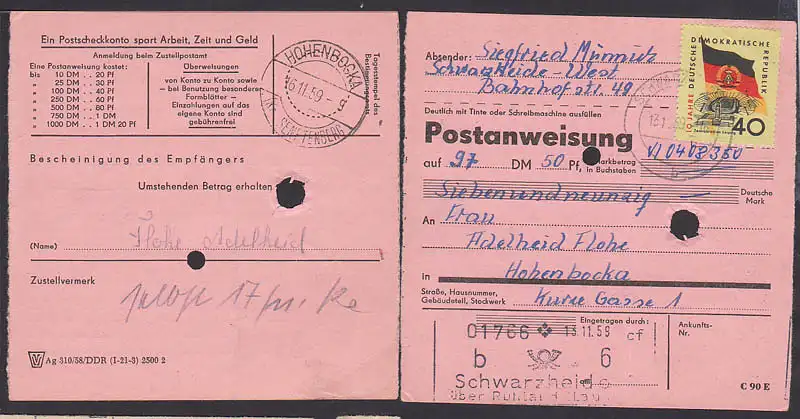 Ein Postscheckkonto spart Arbeit, Zeit und Geld
Anmeldung beim Zustellpostamt
Eine Postanweisung kostet:
bis 10 DM . . 20 Pf
„ 25 DM . . 30 Pf
„ 100 DM . . 40 Pf
„ 250 DM . . 60 Pf
„ 500 DM . . 80 Pf
„ 750 DM . . 1 DM
„ 1000 DM . . 1 DM 20 Pf
Überweisungen
von Konto zu Konto sowie
– bei Benutzung besonderer
Formblätter –
Einzahlungen auf das
eigene Konto sind
gebührenfrei
HOHENBOCKA
16.11.59
SENFTENBERG
Tagesstempel des
Bescheinigung des Empfängers
Umstehenden Betrag erhalten
(Name) Flohe Adelheid
Zustellvermerk
Ag 310/58/DDR (I-21-3) 2500 2
Absender: Siegfried
Schwarzheide-West
Bahnhofstr. 49
Deutlich mit Tinte oder Schreibmaschine ausfüllen
Postanweisung
auf 97 DM 50 Pf,
Markbetrag
in Buchstaben
VI 0408350
Siebenundneunzig
Deutsche
Mark
An Frau
Adelheid Flohe
In Hohenbocka
Straße, Hausnummer,
Gebäudeteil, Stockwerk
Kurze Gasse 1
Eingetragen durch:
Ankunfts-
Nr.
01766 13.11.59 cf
b 6
Schwarzheide
über Ruhland
C 90 E
10 JAHRE DEUTSCHE DEMOKRATISCHE REPUBLIK
40